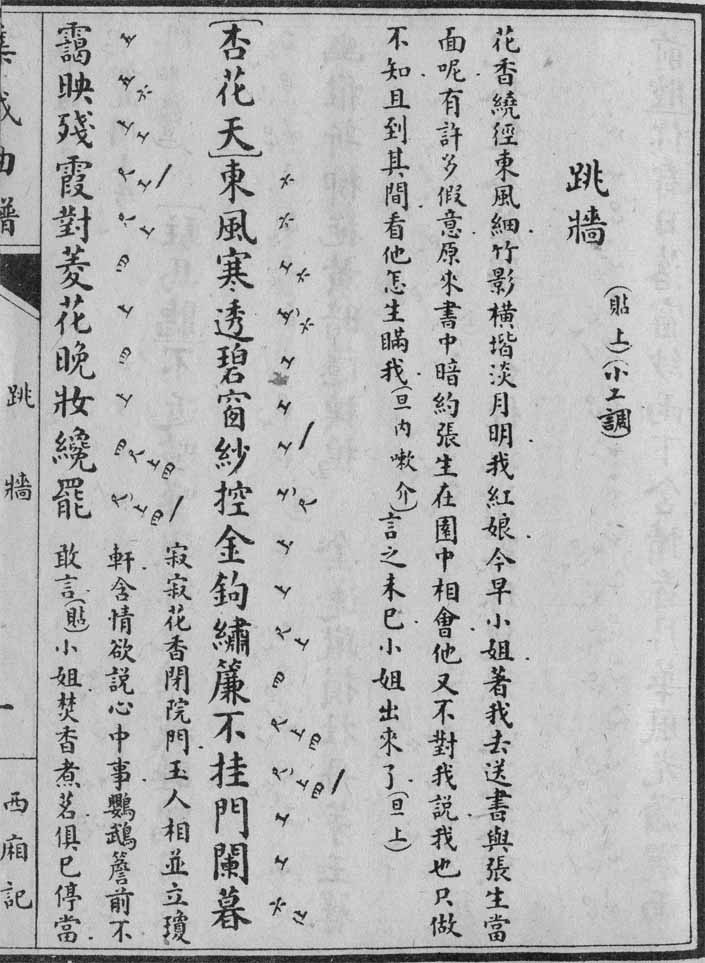 跳牆
(貼上)(小工調)
花香繞徑東風細竹影橫堦淡月明我紅娘今早小姐著我去送書與張生當
面呢有許多假意原來書中暗約張生在園中相會他又不對我說我也只做
不知且到其間看他怎生瞞我(旦內嗽介)言之未已小姐出來了(旦上)
[杏花天]東風寒透碧窗紗控金鉤繡簾不挂門闌暮
靄映殘霞對菱花晚妝纔罷
寂寂花香閉院門玉人相並立瓊
軒含情欲說心中事鸚鵡簷前不
敢言(貼)小姐焚香煮茗俱已停當
集成曲譜
跳牆
一
西廂記